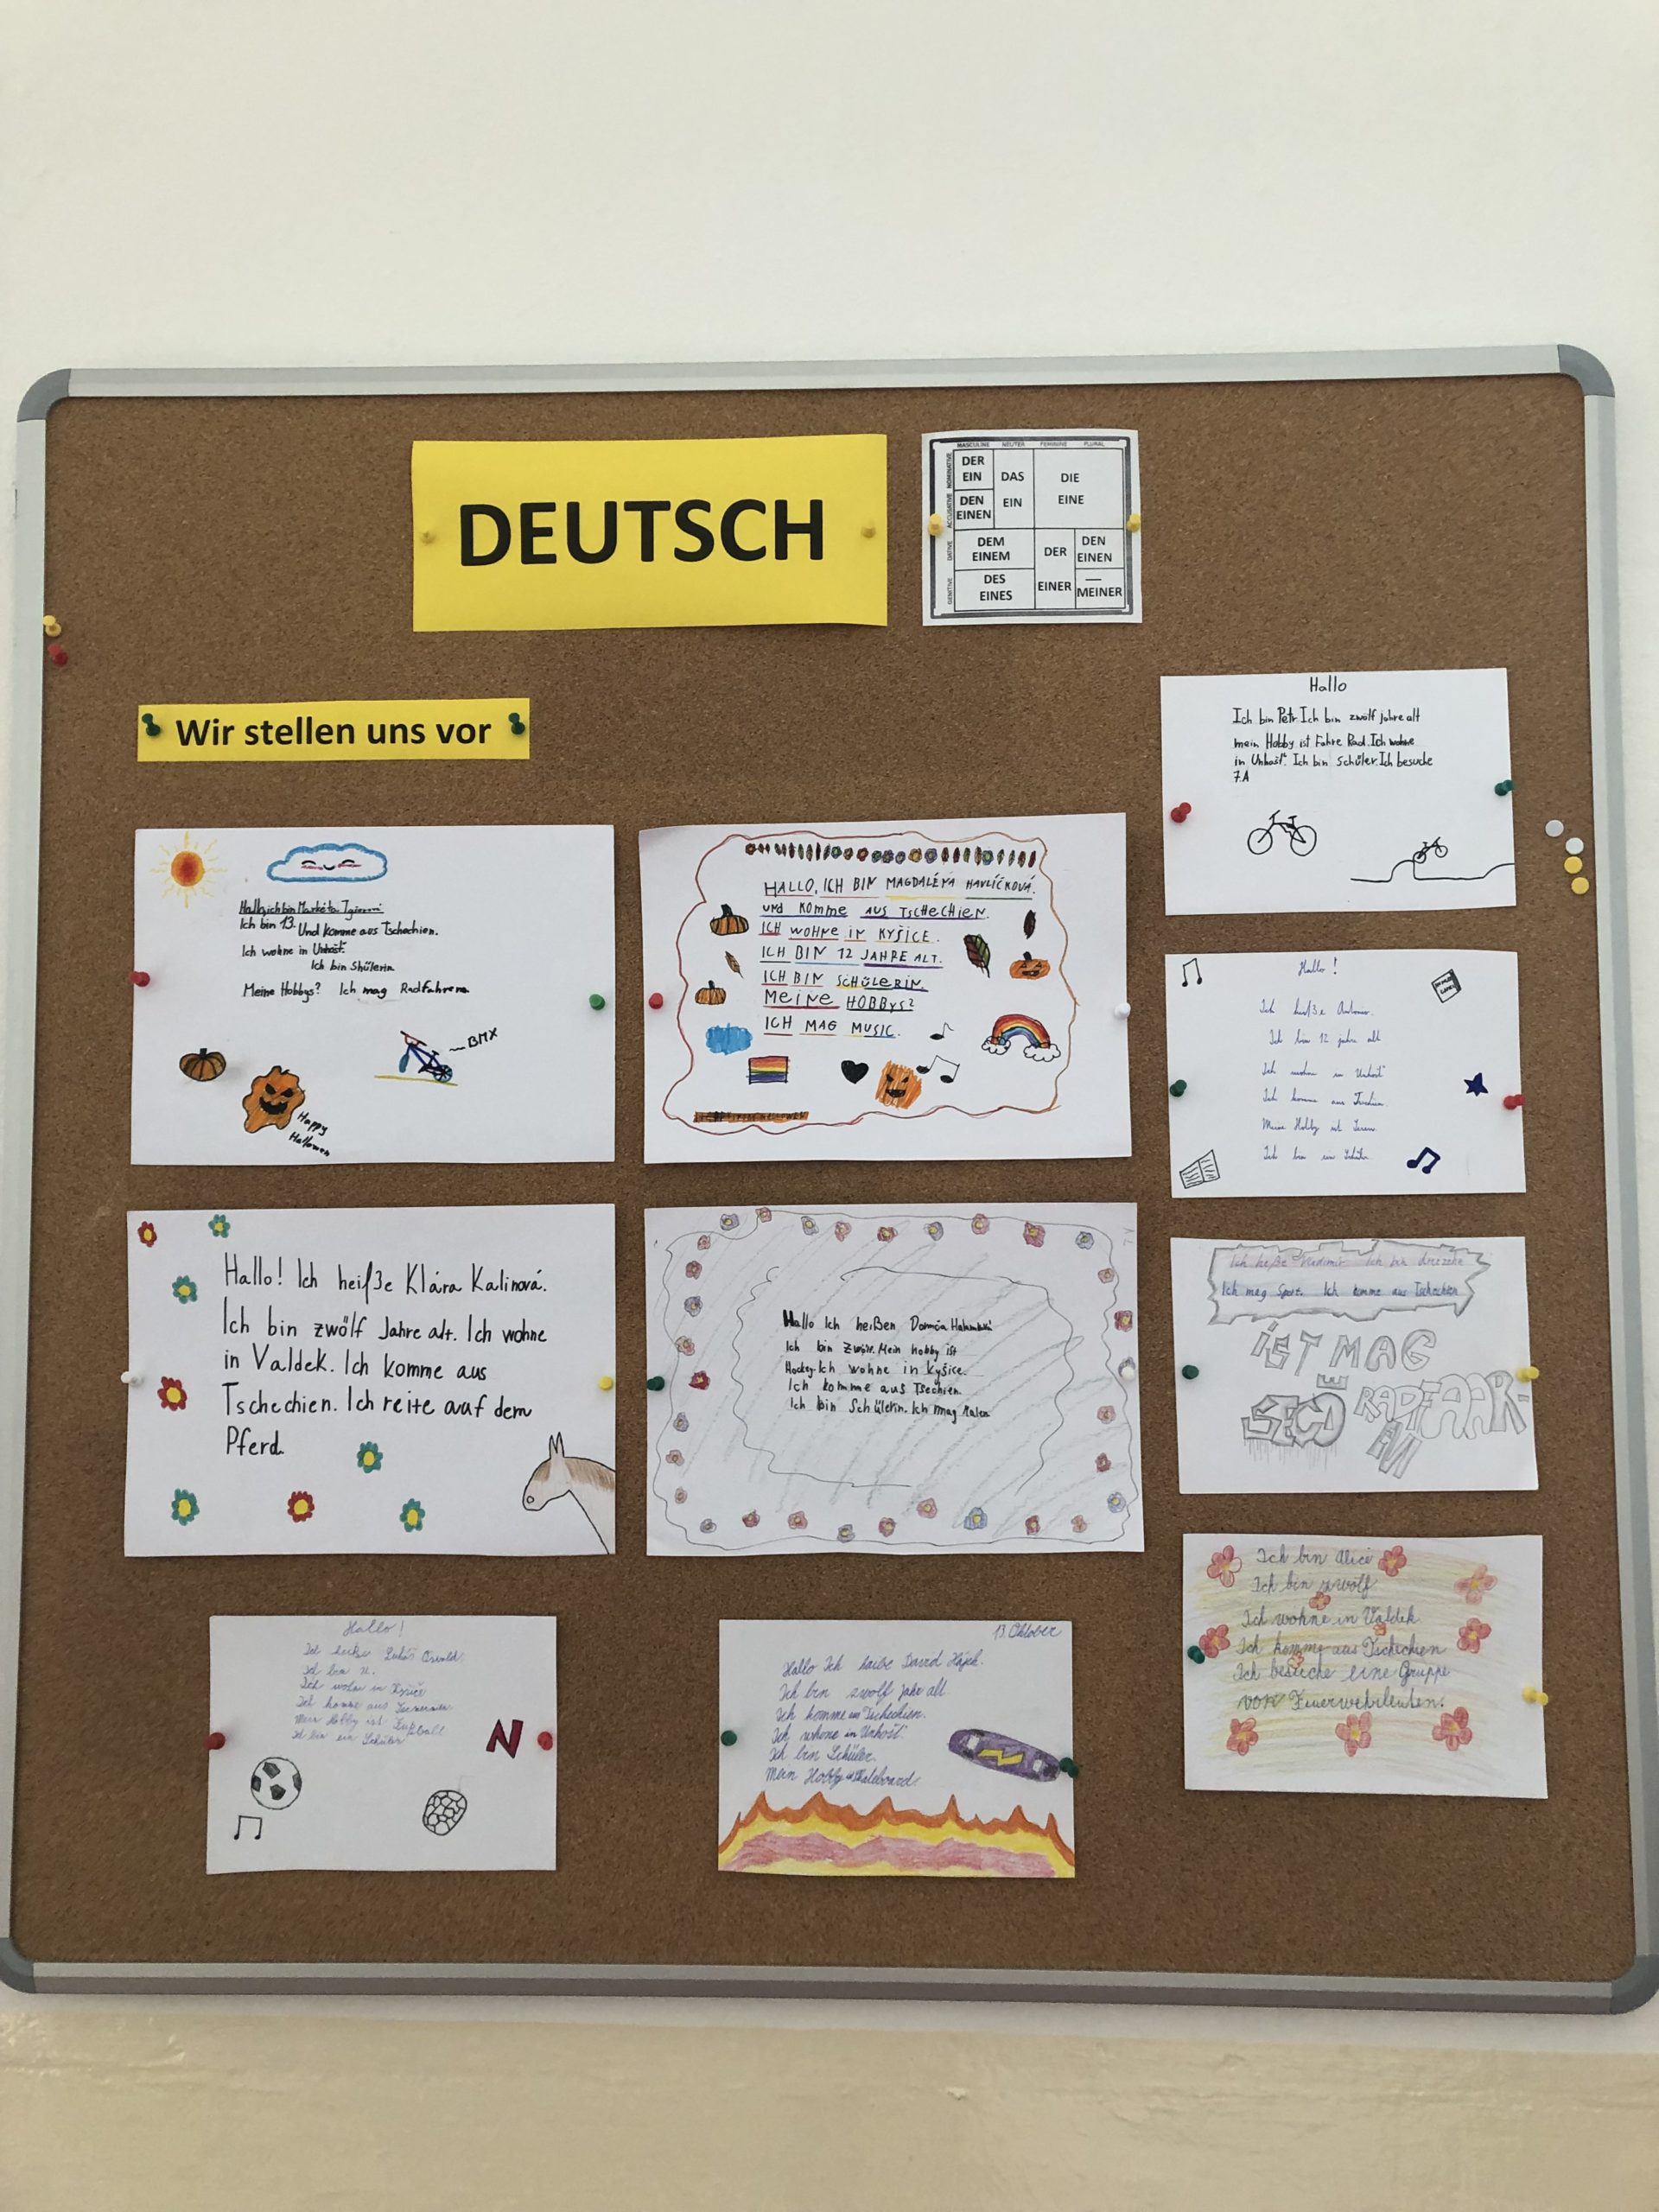 DEUTSCH
MASCULINE NEUTER FEMININE PLURAL
NOMINATIVE
ACCUSATIVE
DATIVE
GENITIVE
DER
EIN
DAS
EIN
DIE
EINE
DEN
EINEN
DEM
EINEM
DER
EINER
DEN
EINEN
DES
EINES
—
MEINER
Wir stellen uns vor
Hallo
Ich bin Petr. Ich bin zwölf jahre alt
mein Hobby ist Fahre Rad. Ich wohne
in Unhošť. Ich bin Schüler. Ich besuche
7.A
Hallo, ich bin Markéta
Ich bin 13. Und komme aus Tschechien.
Ich wohne in Unhošť.
Ich bin Shülerin
Meine Hobbys? Ich mag Radfahren
BMX
Happy
Halloween
HALLO, ICH BIN MAGDALÉNA HAVLÍČKOVÁ.
und Komme AUS TSCHECHIEN.
ICH WOHNE IN KYŠICE.
ICH BIN 12 JAHRE ALT.
ICH BIN SCHÜLERIN.
MEINE HOBBYS?
ICH MAG MUSIC.
Hallo!
Ich heiße
Ich bin 12 jahre alt
Ich wohne in Unhošť
Ich komme aus
Meine Hobby ist
Ich bin ein Schüler
Hallo! Ich heiße Klára Kalinová.
Ich bin zwölf Jahre alt. Ich wohne
in Valdek. Ich komme aus
Tschechien. Ich reite auf dem
Pferd.
Hallo Ich heißen
Ich bin Zwölf. Mein hobby ist
Hockey. Ich wohne in Kyšice.
Ich komme aus Tsechien.
Ich bin Schülerin. Ich mag Malen
Ich heiße Vladimir Ich bin dreizehn
Ich mag Sport. Ich komme aus Tschechien
IST MAG
RADFAAR-
EN
Ich bin Alice
Ich bin zwölf
Ich wohne in Valdek
Ich komme aus Tschechien
Ich besuche eine Gruppe
von Feuerwehrleuten.
Hallo!
Ich Lukáš
Ich bin
Ich in Kyšice
Ich komme aus
Mein Hobby ist Fußball
Ich bin ein Schüler
N
13. Oktober
Hallo Ich David Hájek.
Ich bin zwolf jahr alt
Ich komme aus Tschechien.
Ich whone in Unhošť.
Ich bin Schüler.
Mein Hobby ist Skateboard.